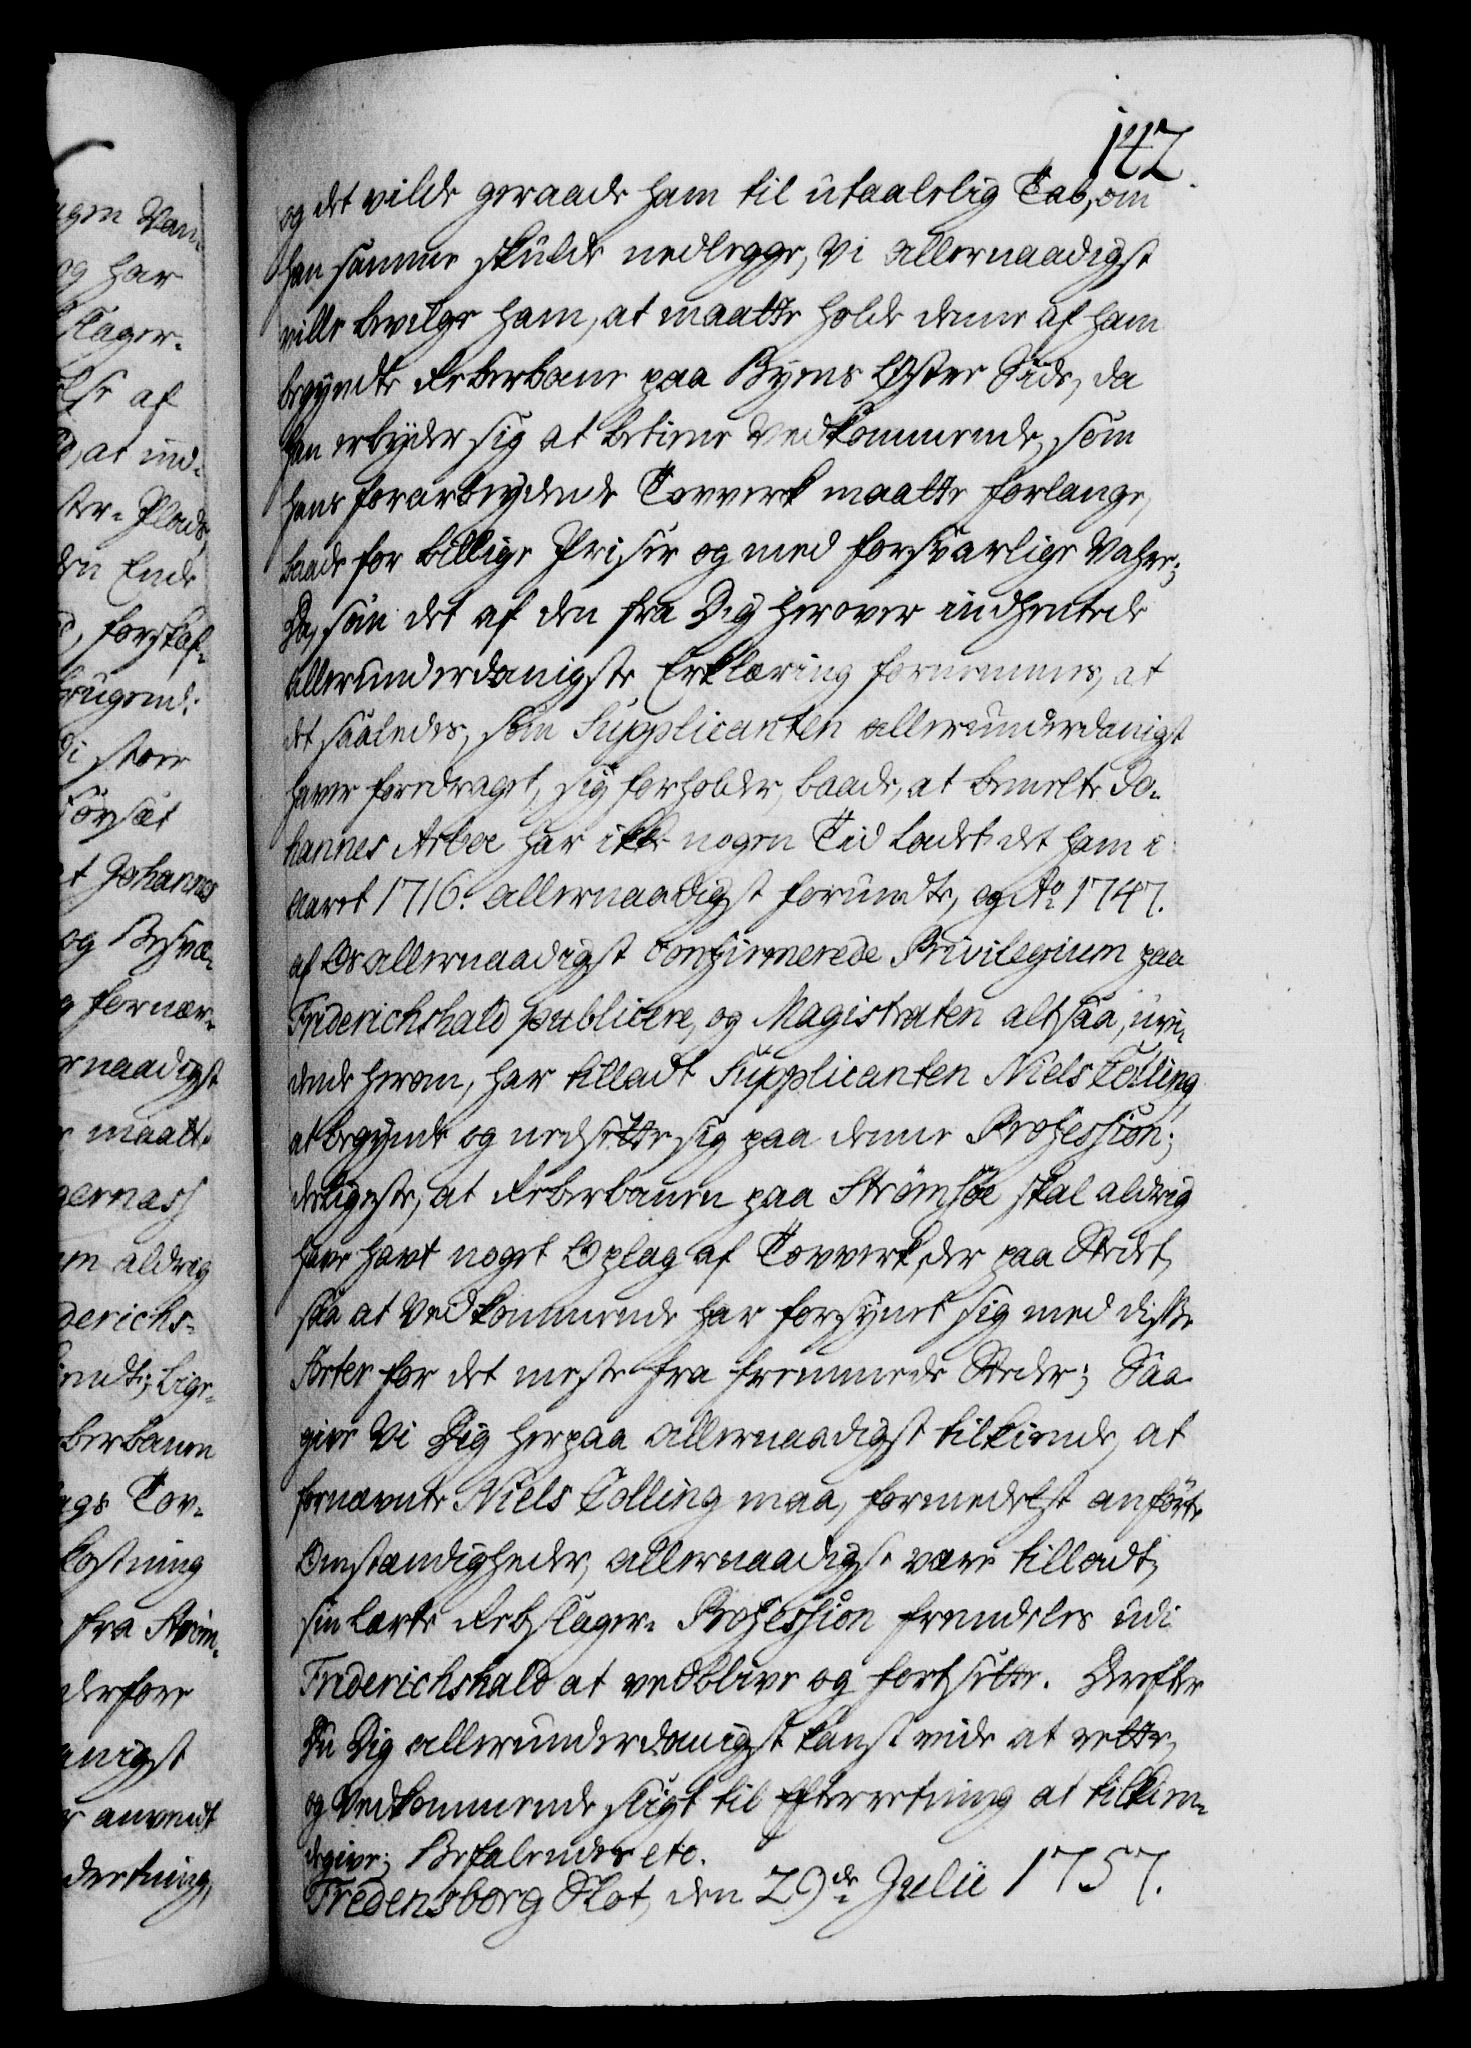 142
og det vilde geraade ham til utaalelig Tab, om
han samme skulde nedlegge, Vi allernaadigst
ville bevilge ham, at maatte holde denne af ham
begyndte Reberbane paa Byens Øster Side, da
han erbyder sig at betiene Vedkommende, som
hans forarbeydende Tovverk maatte forlange,
baade for billige Priser og med forsvarlige Vahre;
Da, som det af den fra Dig herover indhentede
allerunderdanigste Erklæring fornemmes, at
det saaledes, som Supplicanten allerunderdanigst
haver foredraget, sig forholder, baade, at bemelte Jo-
hannes Arboe har ikke nogen Tid ladet det ham i
Aaret 1716. allernaadigst forundte, og Ao 1747.
af Os allernaadigst confirmerede Privilegium paa
Friderichshald publicere, og Magistraten altsaa, uvi-
dende herom, har tilladt Supplicanten Niels Colling,
at begynde og nedsette sig paa denne Profession;
desligeste, at Reberbanen paa Strømsøe skal aldrig
have havt noget Oplag af Tovverk, der paa Stedet,
saa at Vedkommende har forsynet sig med disse
Sorter for det meste fra fremmede Steder; Saa
give Vi Dig herpaa allernaadigst tilkiende, at
fornævnte Niels Colling maa, formedelst anførte
Omstændigheder, allernaadigst være tilladt,
sin lærte Rebslager-Profession fremdeles udi
Friderichshald at vedblive og fortsette. Derefter
Du Dig allerunderdanigst kanst vide at rette,
og Vedkommende sligt til Efterretning at tilkien-
degive; Befalendes etc.
Fredensborg Slot, den 29de Julii 1757.